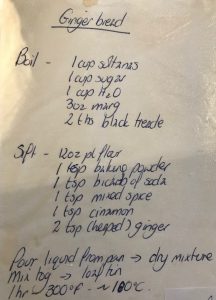 Gingerbread
Boil - 1 cup sultanas
1 cup sugar
1 cup H2O
3oz marg
2 tbs black treacle
Sift - 12oz pl flour
1 tsp baking powder
1 tsp bicarb of soda
1 tsp mixed spice
1 tsp cinamon
2 tsp (heaped) ginger
Pour liquid from pan → dry mixture
Mix tog → loaf tin
1hr - 300°F - ~ 160°C.